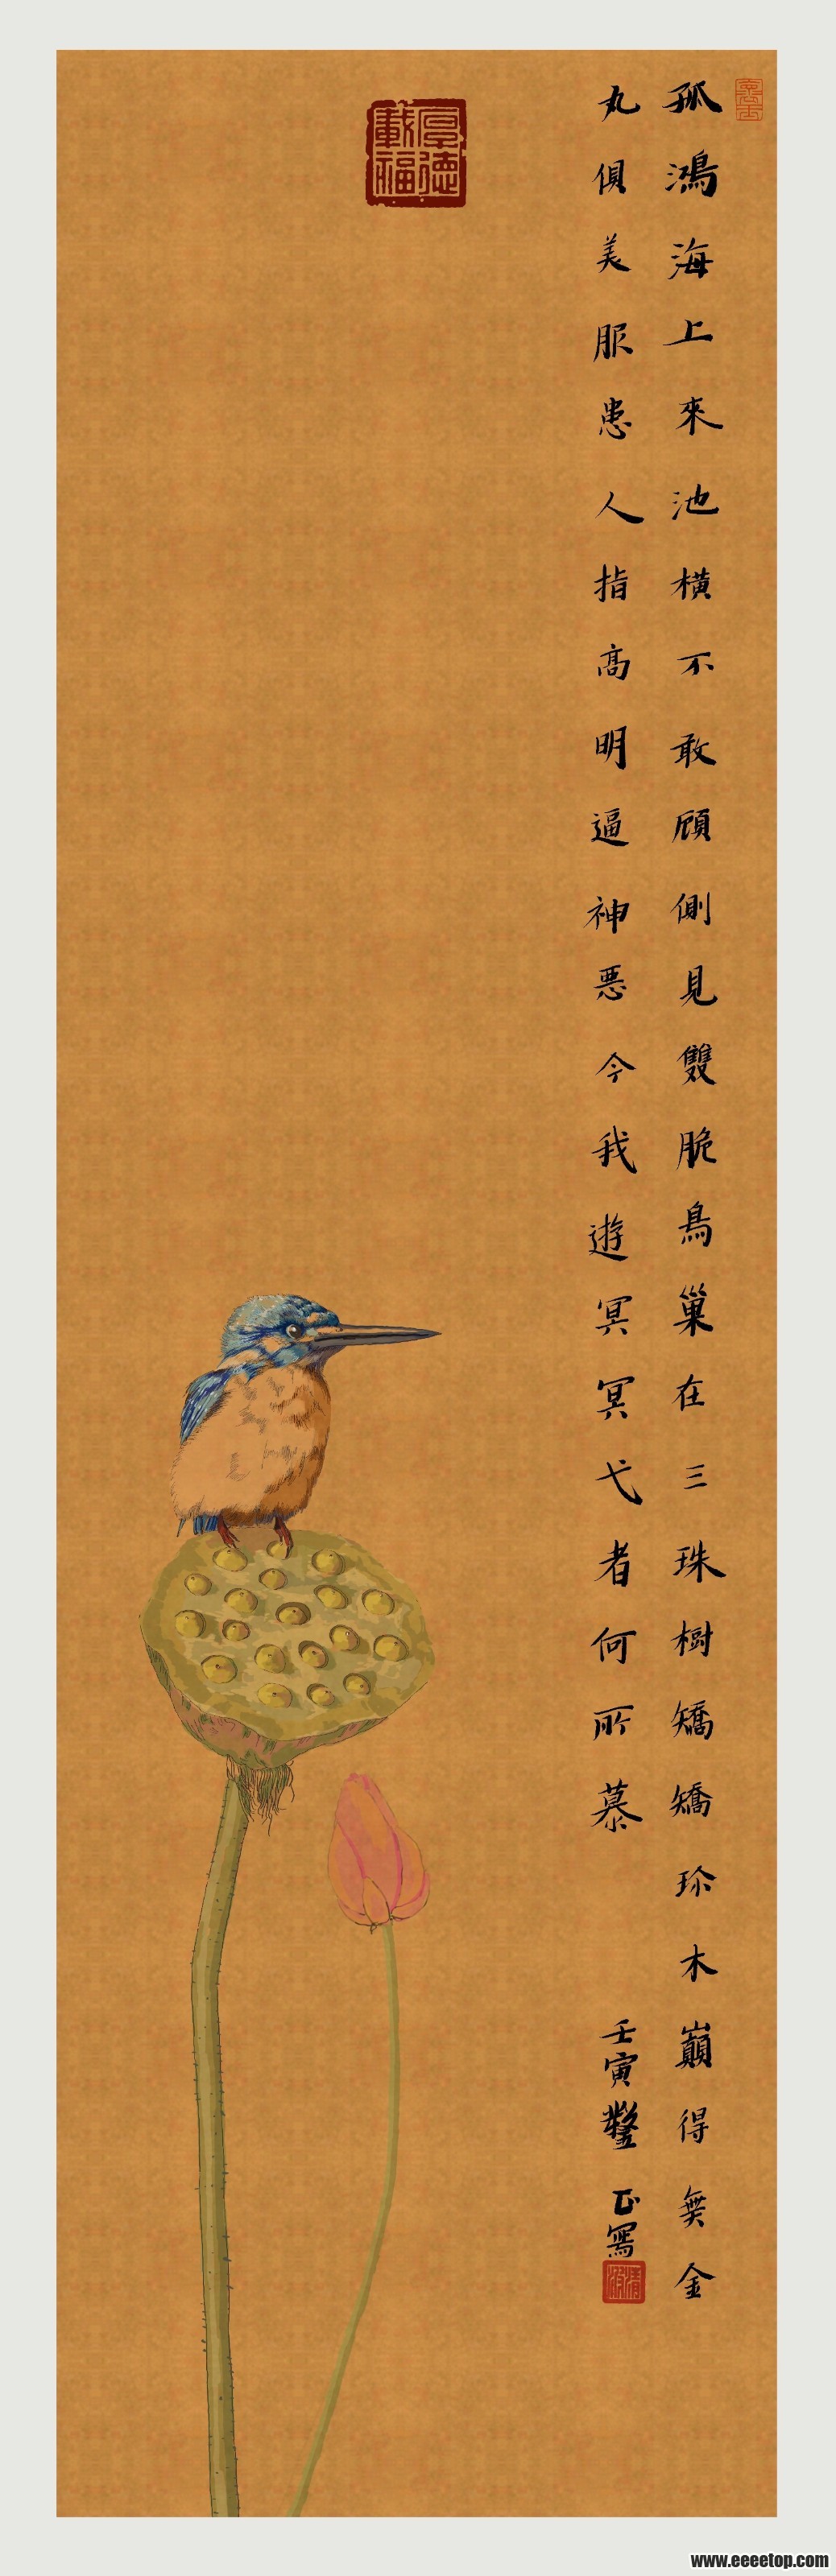 厚德載福
孤鴻海上來池橫不敢頋側見雙脆鳥巢在三珠樹矯矯珎木巔得無金
丸俱美服患人指高明逼神悪今我遊冥冥弋者何所慕
壬寅
正寫
www.eeeetop.com